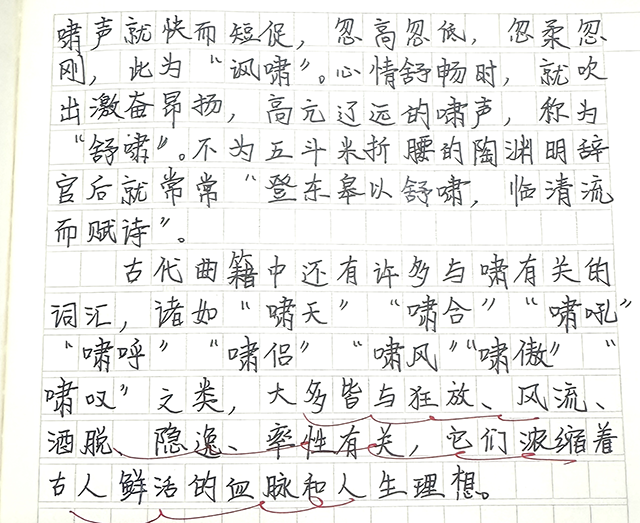 啸声就快而短促，忽高忽低，忽柔忽
刚，此为“讽啸”。心情舒畅时，就吹
出激奋昂扬，高亢辽远的啸声，称为
“舒啸”。不为五斗米折腰的陶渊明辞
官后就常常“登东皋以舒啸，临清流
而赋诗”。
古代曲籍中还有许多与啸有关的
词汇，诸如“啸天”“啸合”“啸吼”
“啸呼”“啸侣”“啸风”“啸傲”“
啸叹”之类，大多皆与狂放、风流、
洒脱、隐逸、率性有关，它们浓缩着
古人鲜活的血脉和人生理想。